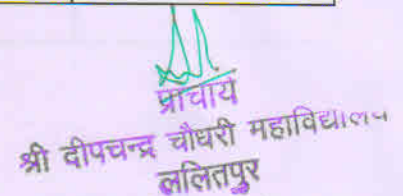 प्राचार्य
श्री दीपचन्द्र चौधरी महाविद्यालय
ललितपुर